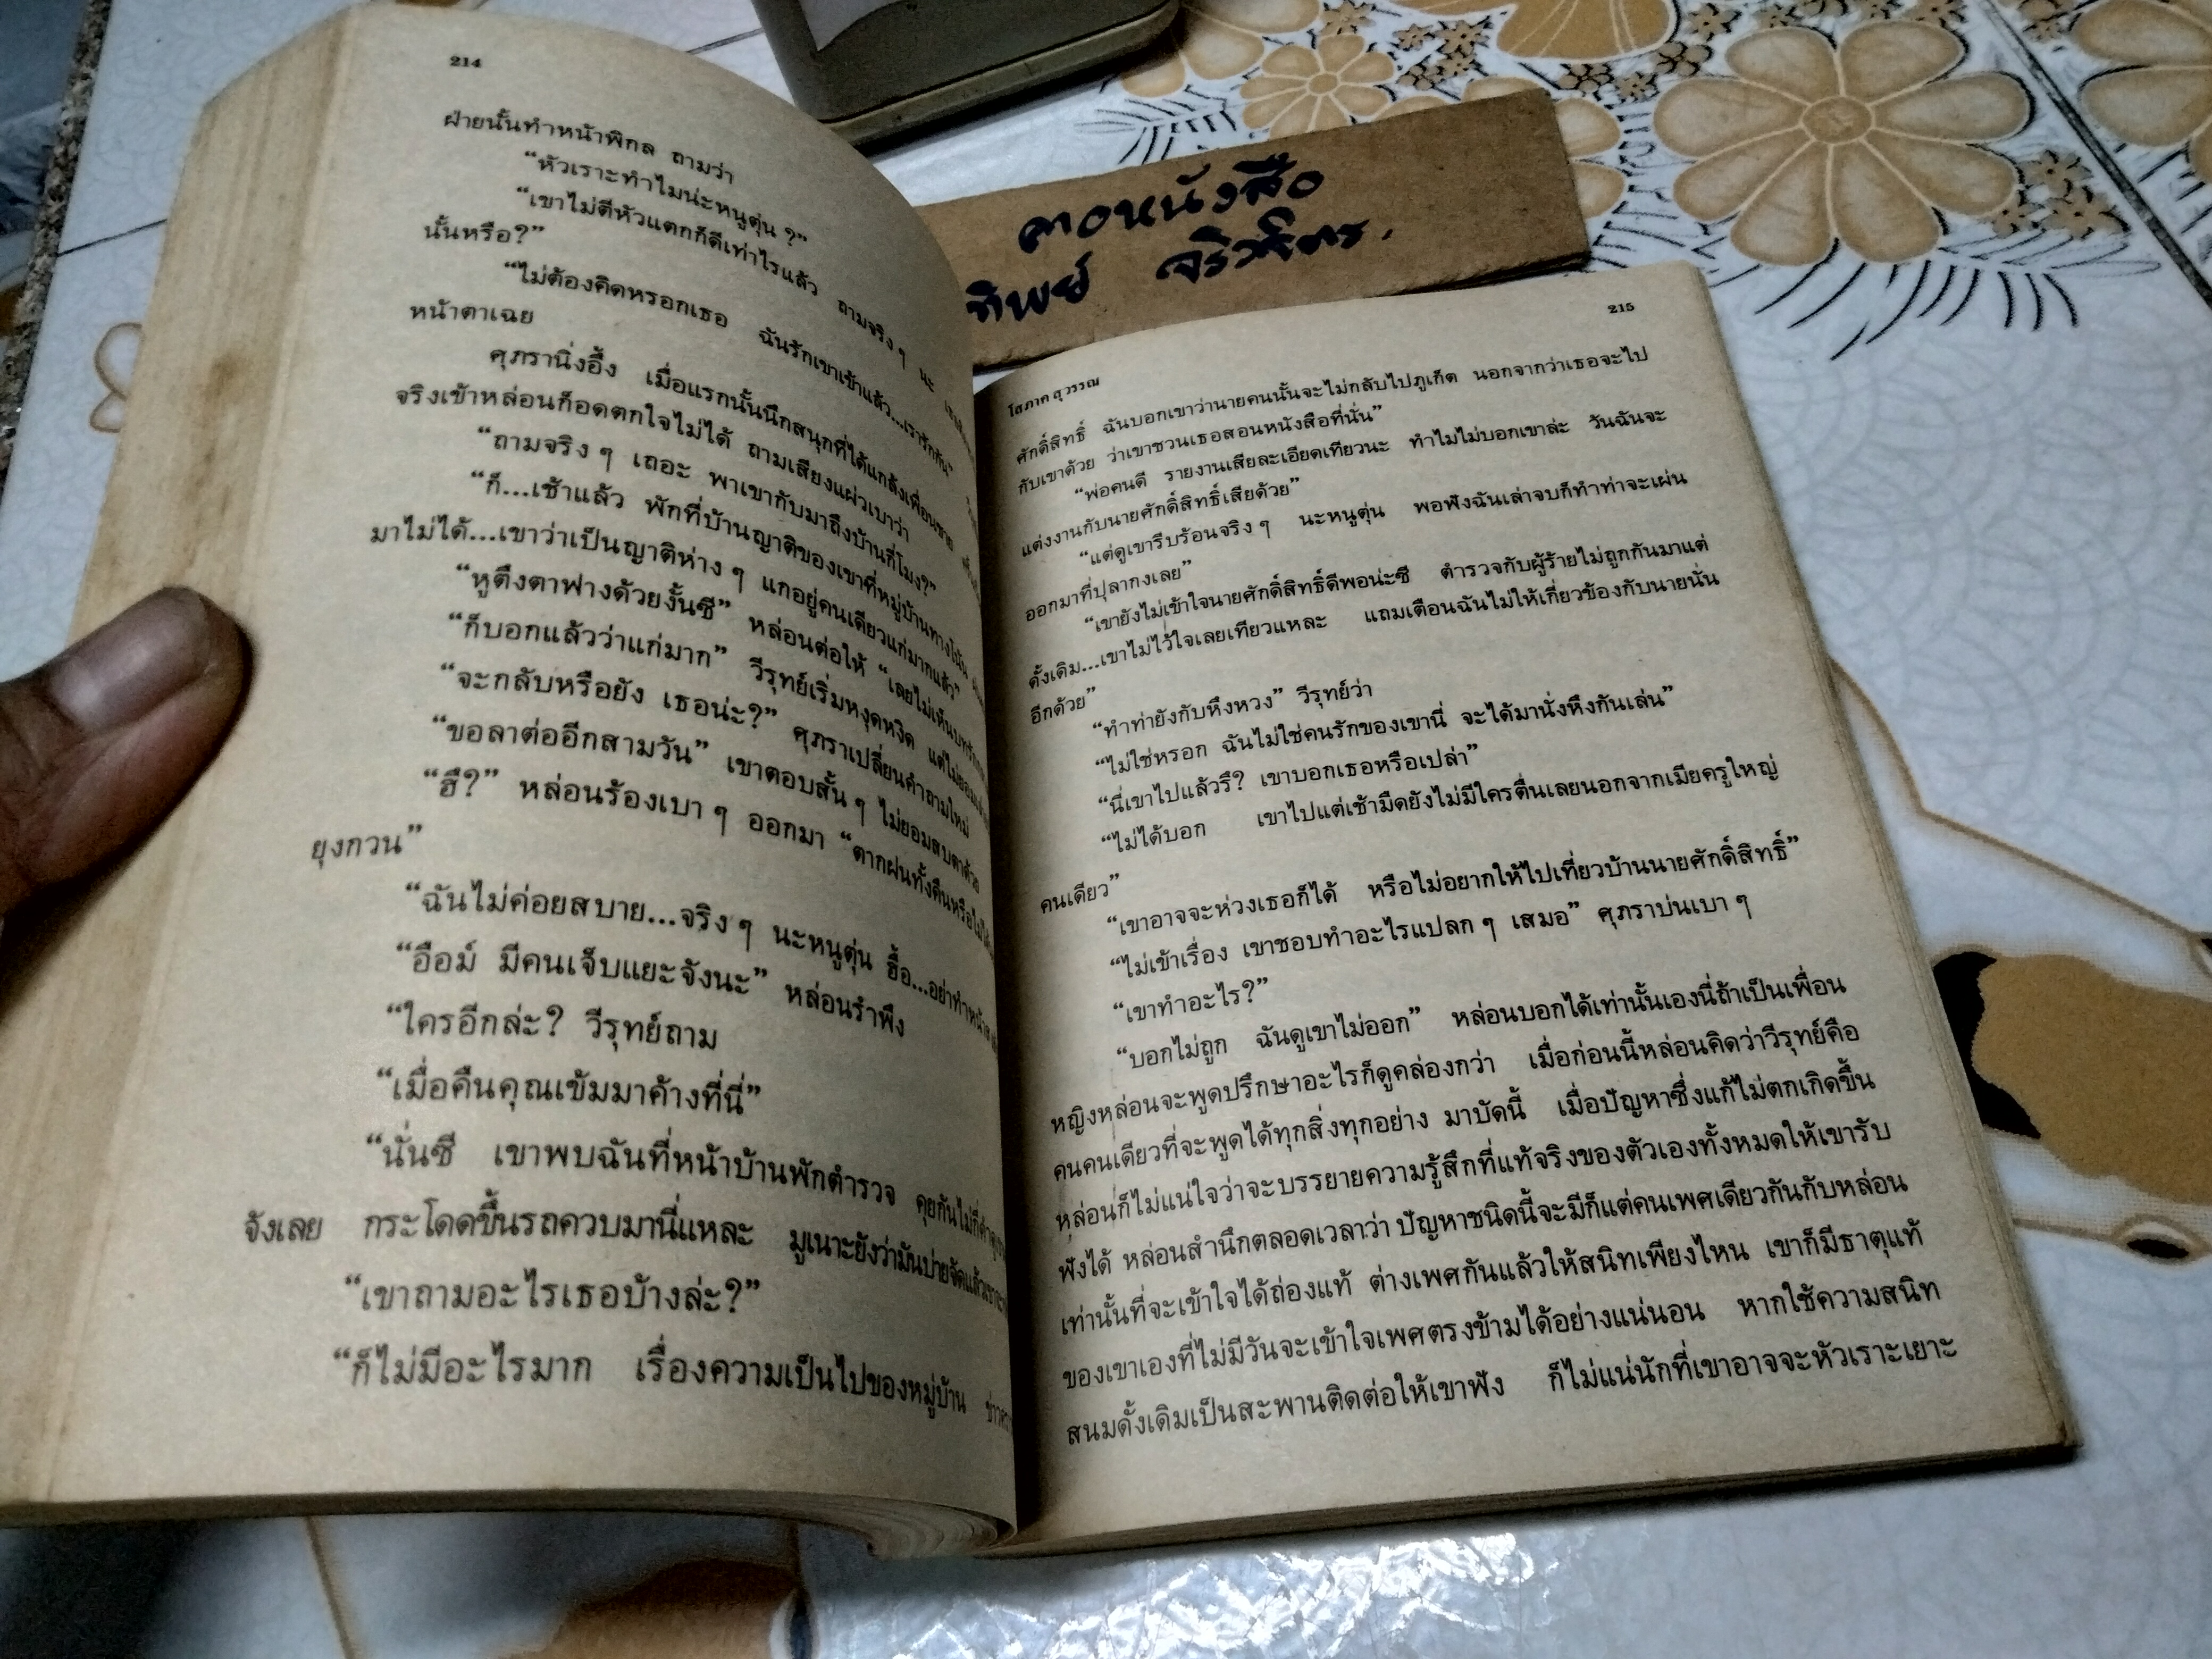 214
ฝ่ายนั้นทำหน้าพิกล ถามว่า
“หัวเราะทำไมน่ะหนูตุ่น ?”
“เขาไม่ตีหัวแตกก็ดีเท่าไรแล้ว ถามจริง ๆ นะ
นั้นหรือ?”
“ไม่ต้องคิดหรอกเธอ ฉันรักเขาเข้าแล้ว...เรารักกัน”
หน้าตาเฉย
ศุภรานิ่งอึ้ง เมื่อแรกนั้นนึกสนุกที่ได้แกล้งเพื่อนชาย
จริงเข้าหล่อนก็อดตกใจไม่ได้ ถามเสียงแผ่วเบาว่า
“ถามจริง ๆ เถอะ พาเขากับมาถึงบ้านกี่โมง?”
“ก็...เช้าแล้ว พักที่บ้านญาติของเขาที่หมู่บ้านทางโน้น
มาไม่ได้...เขาว่าเป็นญาติห่าง ๆ แกอยู่คนเดียวแก่มากแล้ว”
“หูตึงตาฟางด้วยงั้นซี” หล่อนต่อให้ “เลยไม่เห็น
“ก็บอกแล้วว่าแก่มาก” วีรุทย์เริ่มหงุดหงิด แต่ไม่ยอม
“จะกลับหรือยัง เธอน่ะ?” ศุภราเปลี่ยนคำถามใหม่
“ขอลาต่ออีกสามวัน” เขาตอบสั้น ๆ ไม่ยอมสบตาด้วย
“ฮึ?” หล่อนร้องเบา ๆ ออกมา “ตากฝนทั้งคืนหรือ
ยุงกวน”
“ฉันไม่ค่อยสบาย...จริง ๆ นะหนูตุ่น ฮื้อ...อย่าทำหน้า
“อือม์ มีคนเจ็บแยะจังนะ” หล่อนรำพึง
“ใครอีกล่ะ? วีรุทย์ถาม
“เมื่อคืนคุณเข้มมาค้างที่นี่”
“นั่นซี เขาพบฉันที่หน้าบ้านพักตำรวจ คุยกันไม่กี่คำ
จังเลย กระโดดขึ้นรถควบมานี่แหละ มูเนาะยังว่ามันบ่ายจัดแล้ว
“เขาถามอะไรเธอบ้างล่ะ?”
“ก็ไม่มีอะไรมาก เรื่องความเป็นไปของหมู่บ้าน
โสภาค สุวรรณ
215
ศักดิ์สิทธิ์ ฉันบอกเขาว่านายคนนั้นจะไม่กลับไปภูเก็ต นอกจากว่าเธอจะไป
กับเขาด้วย ว่าเขาชวนเธอสอนหนังสือที่นั่น”
“พ่อคนดี รายงานเสียละเอียดเทียวนะ ทำไมไม่บอกเขาล่ะ วันฉันจะ
แต่งงานกับนายศักดิ์สิทธิ์เสียด้วย”
“แต่ดูเขารีบร้อนจริง ๆ นะหนูตุ่น พอฟังฉันเล่าจบก็ทำท่าจะเผ่น
ออกมาที่ปุลากงเลย”
“เขายังไม่เข้าใจนายศักดิ์สิทธิ์ดีพอน่ะซี ตำรวจกับผู้ร้ายไม่ถูกกันมาแต่
ดั้งเดิม...เขาไม่ไว้ใจเลยเทียวแหละ แถมเตือนฉันไม่ให้เกี่ยวข้องกับนายนั่น
อีกด้วย”
“ทำท่ายังกับหึงหวง” วีรุทย์ว่า
“ไม่ใช่หรอก ฉันไม่ใช่คนรักของเขานี่ จะได้มานั่งหึงกันเล่น”
“นี่เขาไปแล้วรึ? เขาบอกเธอหรือเปล่า”
“ไม่ได้บอก เขาไปแต่เช้ามืดยังไม่มีใครตื่นเลยนอกจากเมียครูใหญ่
คนเดียว”
“เขาอาจจะห่วงเธอก็ได้ หรือไม่อยากให้ไปเที่ยวบ้านนายศักดิ์สิทธิ์”
“ไม่เข้าเรื่อง เขาชอบทำอะไรแปลก ๆ เสมอ” ศุภราบ่นเบา ๆ
“เขาทำอะไร?”
“บอกไม่ถูก ฉันดูเขาไม่ออก” หล่อนบอกได้เท่านั้นเองนี่ถ้าเป็นเพื่อน
หญิงหล่อนจะพูดปรึกษาอะไรก็ดูคล่องกว่า เมื่อก่อนนี้หล่อนคิดว่าวีรุทย์คือ
คนคนเดียวที่จะพูดได้ทุกสิ่งทุกอย่าง มาบัดนี้ เมื่อปัญหาซึ่งแก้ไม่ตกเกิดขึ้น
หล่อนก็ไม่แน่ใจว่าจะบรรยายความรู้สึกที่แท้จริงของตัวเองทั้งหมดให้เขารับ
ฟังได้ หล่อนสำนึกตลอดเวลาว่า ปัญหาชนิดนี้จะมีก็แต่คนเพศเดียวกันกับหล่อน
เท่านั้นที่จะเข้าใจได้ถ่องแท้ ต่างเพศกันแล้วให้สนิทเพียงไหน เขาก็มีธาตุแท้
ของเขาเองที่ไม่มีวันจะเข้าใจเพศตรงข้ามได้อย่างแน่นอน หากใช้ความสนิท
สนมดั้งเดิมเป็นสะพานติดต่อให้เขาฟัง ก็ไม่แน่นักที่เขาอาจจะหัวเราะเยาะ
หนังสือ
ทิพย์